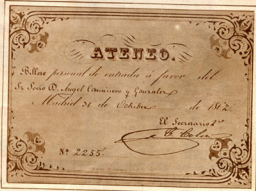 ATENEO.
Billete personal de entrada a favor del
Sr. Socio D. Angel y Gonzalez
Madrid 31 de Octubre de 186
El Secretario 1º
Nº 2255.